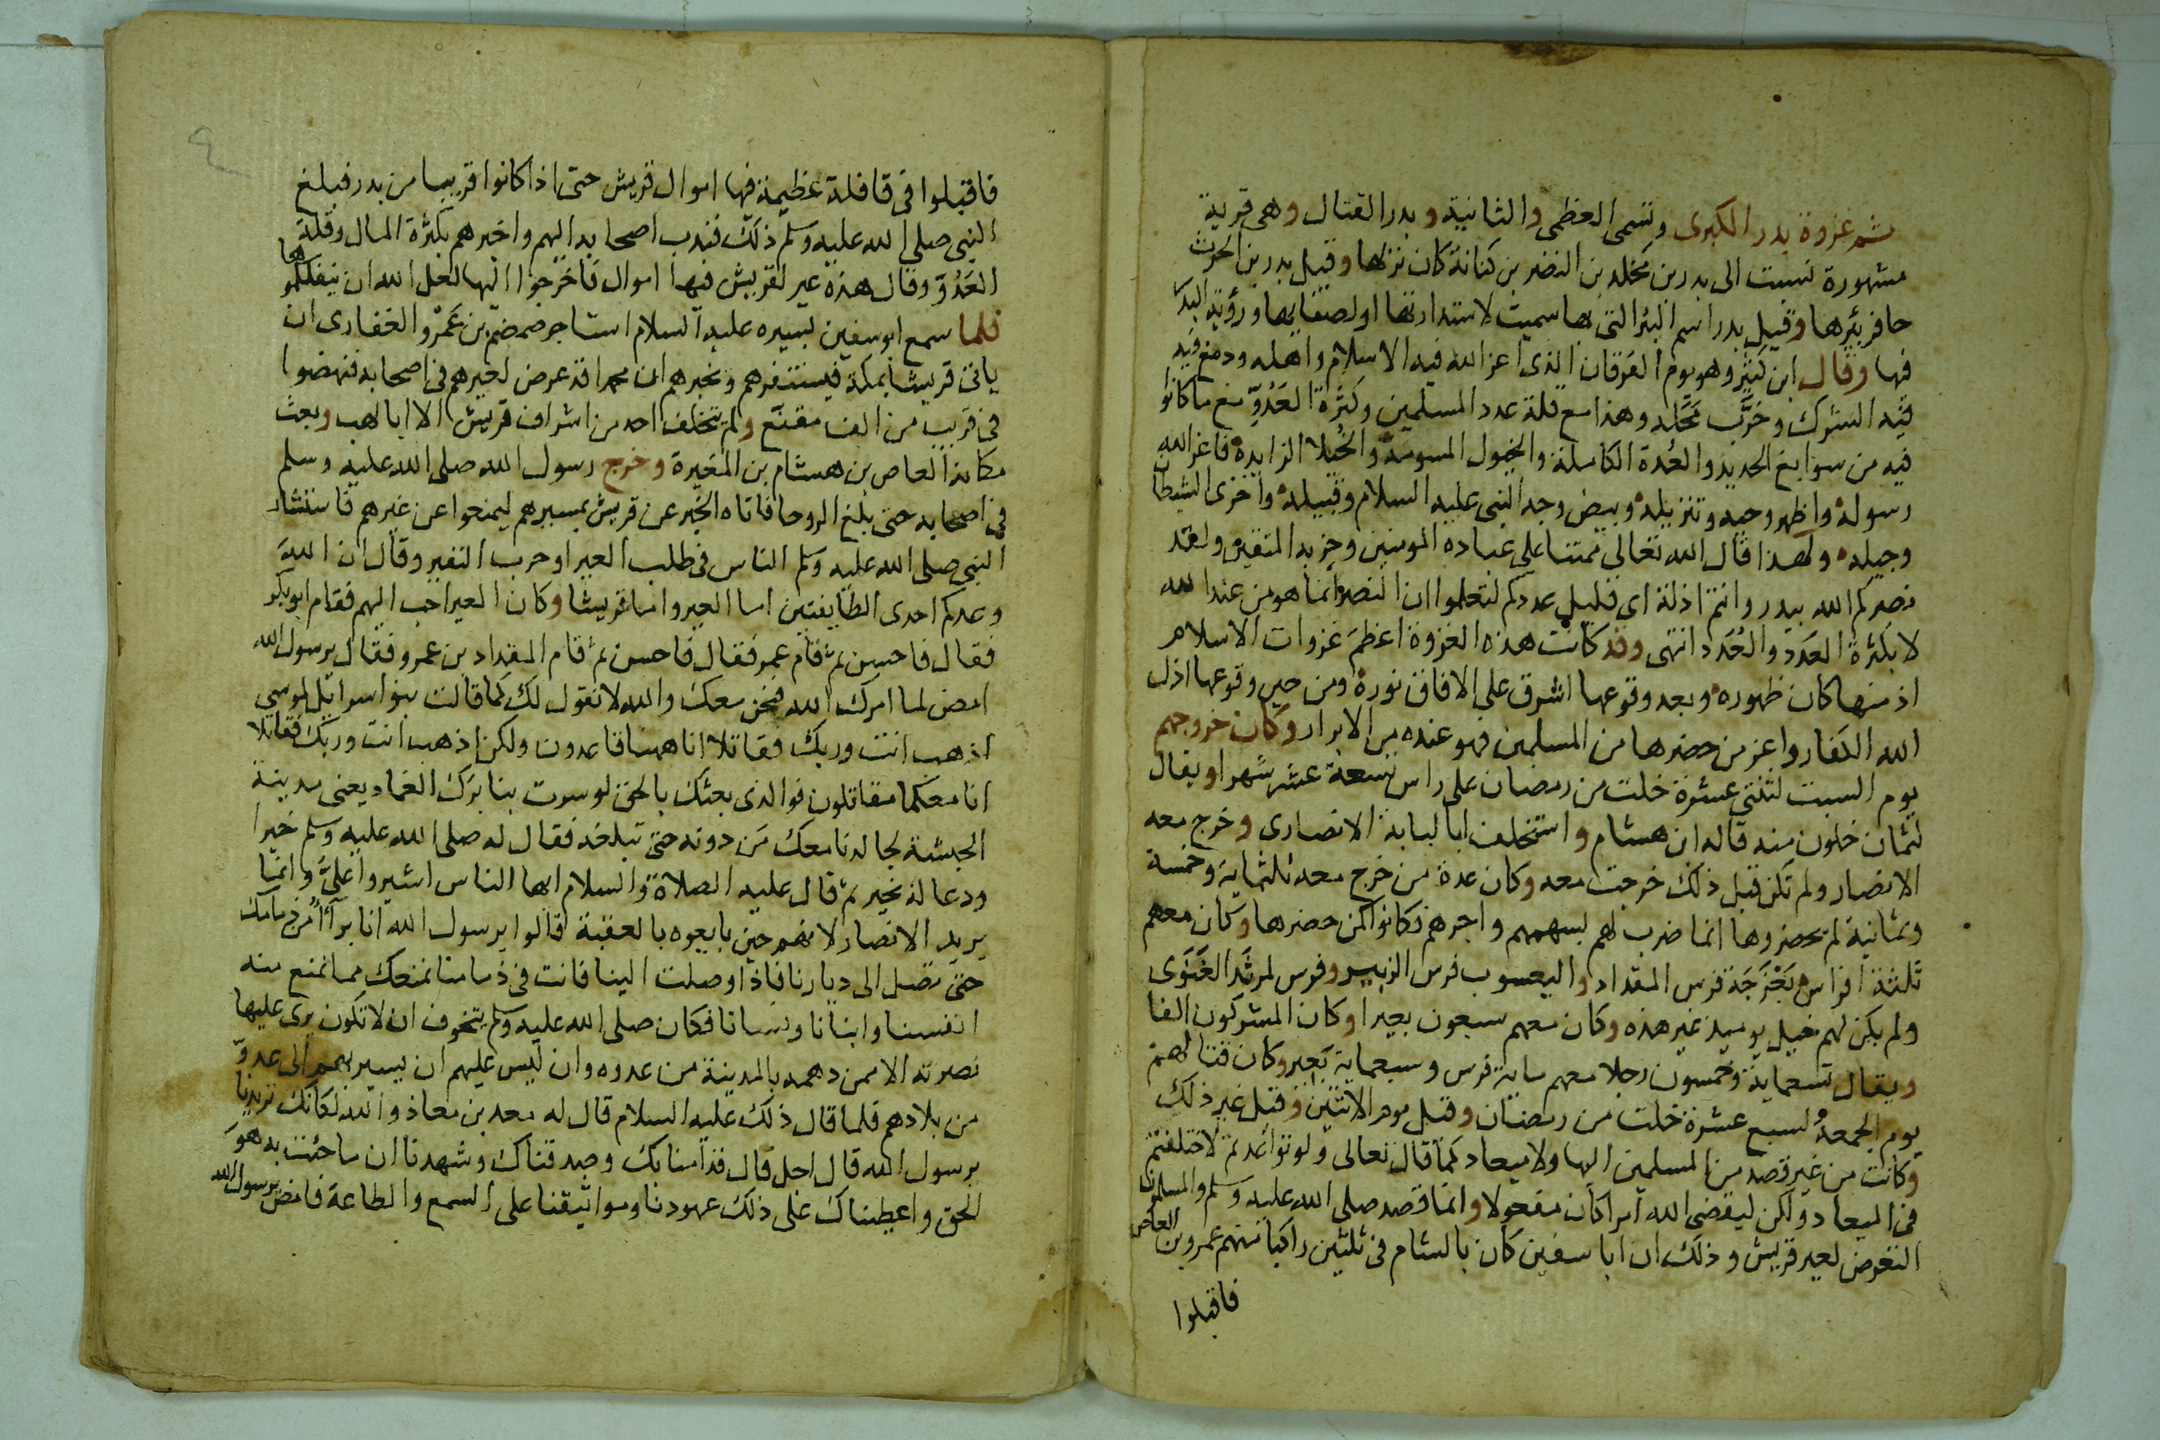 ثم غزوة بدر الكبرى وتسمى العظمى والثانية وبدر القتال وهي قرية
مشهورة نسبت الى بدر بن مخلد بن النضر بن كنانة كان نزلها وقيل بدر بن الحرث
حافر بئرها وقيل بدر اسم البئر التى بها سميت لاستدارتها او لصفائها ورؤية البدر
فيها وقال ابن كثير وهو يوم الفرقان الذى اعز الله فيه الاسلام واهله ودمغ فيه
فيه الشرك وخرَّب محَلّه وهذا مع قلة عدد المسلمين وكثرة العَدُوّ مع ما كانوا
فيه من سوابغ الحديد والعُدة الكاملة والخيول المسومة والخُيلا الزايدة فاعز الله
رسوله واظهر وحيه وتنزيله وبيض وجه النبى عليه السلام وقبيله واخزى الشيطان
وجيله ولهذا قال الله تعالى ممتنا على عباده المومنين وحزبه المتقين ولقد
نصركم الله ببدر وانتم اذلة اى قليل عددكم لتعلموا ان النصر انما هو من عند الله
لا بكثرة العَدَد والعُدَد انتهى وقد كانت هذه الغزوة اعظمَ غزوات الاسلام
اذ منها كان ظهوره وبعد وقوعها اشرق على الافاق نوره ومن حين وقوعها اذل
الله الكفار واعز من حضرها من المسلمين فهو عنده من الابرار وكان خروجهم
يوم السبت لثنتى عشرة خلت من رمضان على راس تسعة عشر شهرا ويقال
لثمان خلون منه قاله ابن هشام واستخلف ابا لبابة الانصارى وخرج معه
الانصار ولم تكن قبل ذلك خرجت معه وكان عدة من خرج معه ثلثماية وخمسة
وثمانية لم يحضروها انما ضرب لهم بسهمهم واجرهم فكانوا كمن حضرها وكان معهم
ثلثة افراس بَعْزَجَة فرس المقداد واليعسوب فرس الزبير وفرس لمرثد الغَنَوى
ولم يكن لهم خيل يوميذ غير هذه وكان معهم سبعون بعيرا وكان المشركون الفا
ويقال تسعماية وخمسون رجلا معهم ماية فرس وسبعماية بعير وكان قتالهم
يوم الجمعة لسبع عشرة خلت من رمضان وقيل يوم الاثنين وقيل غير ذلك
وكانت من غير قصد من المسلمين اليها ولا ميعاد كما قال تعالى ولو تواعدتم لاختلفتم
فى الميعاد ولكن ليقضى الله امرا كان مفعولا وانما قصد صلى الله عليه وسلم والمسلمون
التعرض لعير قريش وذلك ان ابا سفين كان بالشام فى ثلثين راكبا منهم عمرو بن العاص
فاقبلوا
فاقبلوا فى قافلة عظيمة فيها اموال قريش حتى اذا كانوا قريبا من بدر فبلغ
النبى صلى الله عليه وسلم ذلك فندب اصحابه اليهم واخبرهم بكثرة المال وقلة
العَدُوّ وقال هذه عير لقريش فيها اموال فاخرجوا اليها لعل الله ان ينفلكموها
فلما سمع ابو سفين بسيره عليه السلام استاجر ضمضم بن عَمْرو الغفارى ان
ياتى قريشا بمكة فيستنفرهم ويخبرهم ان محمدا قد عرض لعيرهم فى اصحابه فنهضوا
فى قريب من الف مقنّع ولم يتخلف احد من اشراف قريش الا ابا لهب وبعث
مكانه العاص بن هشام بن المغيرة وخرج رسول الله صلى الله عليه وسلم
فى اصحابه حتى بلغ الروحا فاتاه الخبر عن قريش بمسيرهم ليمنعوا عن عيرهم فاستشار
النبى صلى الله عليه وسلم الناس فى طلب العير او حرب النفير وقال ان الله
وعدكم احدى الطايفتين اما العير واما قريشا وكان العير احب اليهم فقام ابو بكر
فقال فاحسن ثم قام عمر فقال فاحسن ثم قام المقداد بن عمرو فقال يرسول الله
امض لما امرك الله فنحن معك والله لا نقول لك كما قالت بنو اسرائل لموسى
اذهب انت وربك فقاتلا انا ههنا قاعدون ولكن اذهب انت وربك فقاتلا
انا معكما مقاتلون فوالذى بعثك بالحق لو سرت بنا بَرْك الغماد يعنى مدينة
الحبشة لجالدنا معك من دونه حتى تبلغه فقال له صلى الله عليه وسلم خيرا
ودعا له بخير ثم قال عليه الصلاة والسلام ايها الناس اشيروا علىّ وانما
يريد الانصار لانهم حين بايعوه بالعقبة قالوا يرسول الله انا برآ من ذمامك
حتى تصل الى ديارنا فاذا وصلت الينا فانت فى ذمامنا نمنعك مما نمنع منه
انفسنا وابنانا ونسانا فكان صلى الله عليه وسلم يتخوف ان لا تكون يرى عليها
نصرته الا ممن دهمه بالمدينة من عدوه وان ليس عليهم ان يسير بهم الى عدوّ
من بلادهم فلما قال ذلك عليه السلام قال له سعد بن معاذ والله لكانك تريدنا
يرسول الله قال اجل قال قد آمنا بك وصدقناك وشهدنا ان ما جئت به هو
الحق واعطيناك على ذلك عهودنا ومواثيقنا على السمع والطاعة فامض يرسول الله